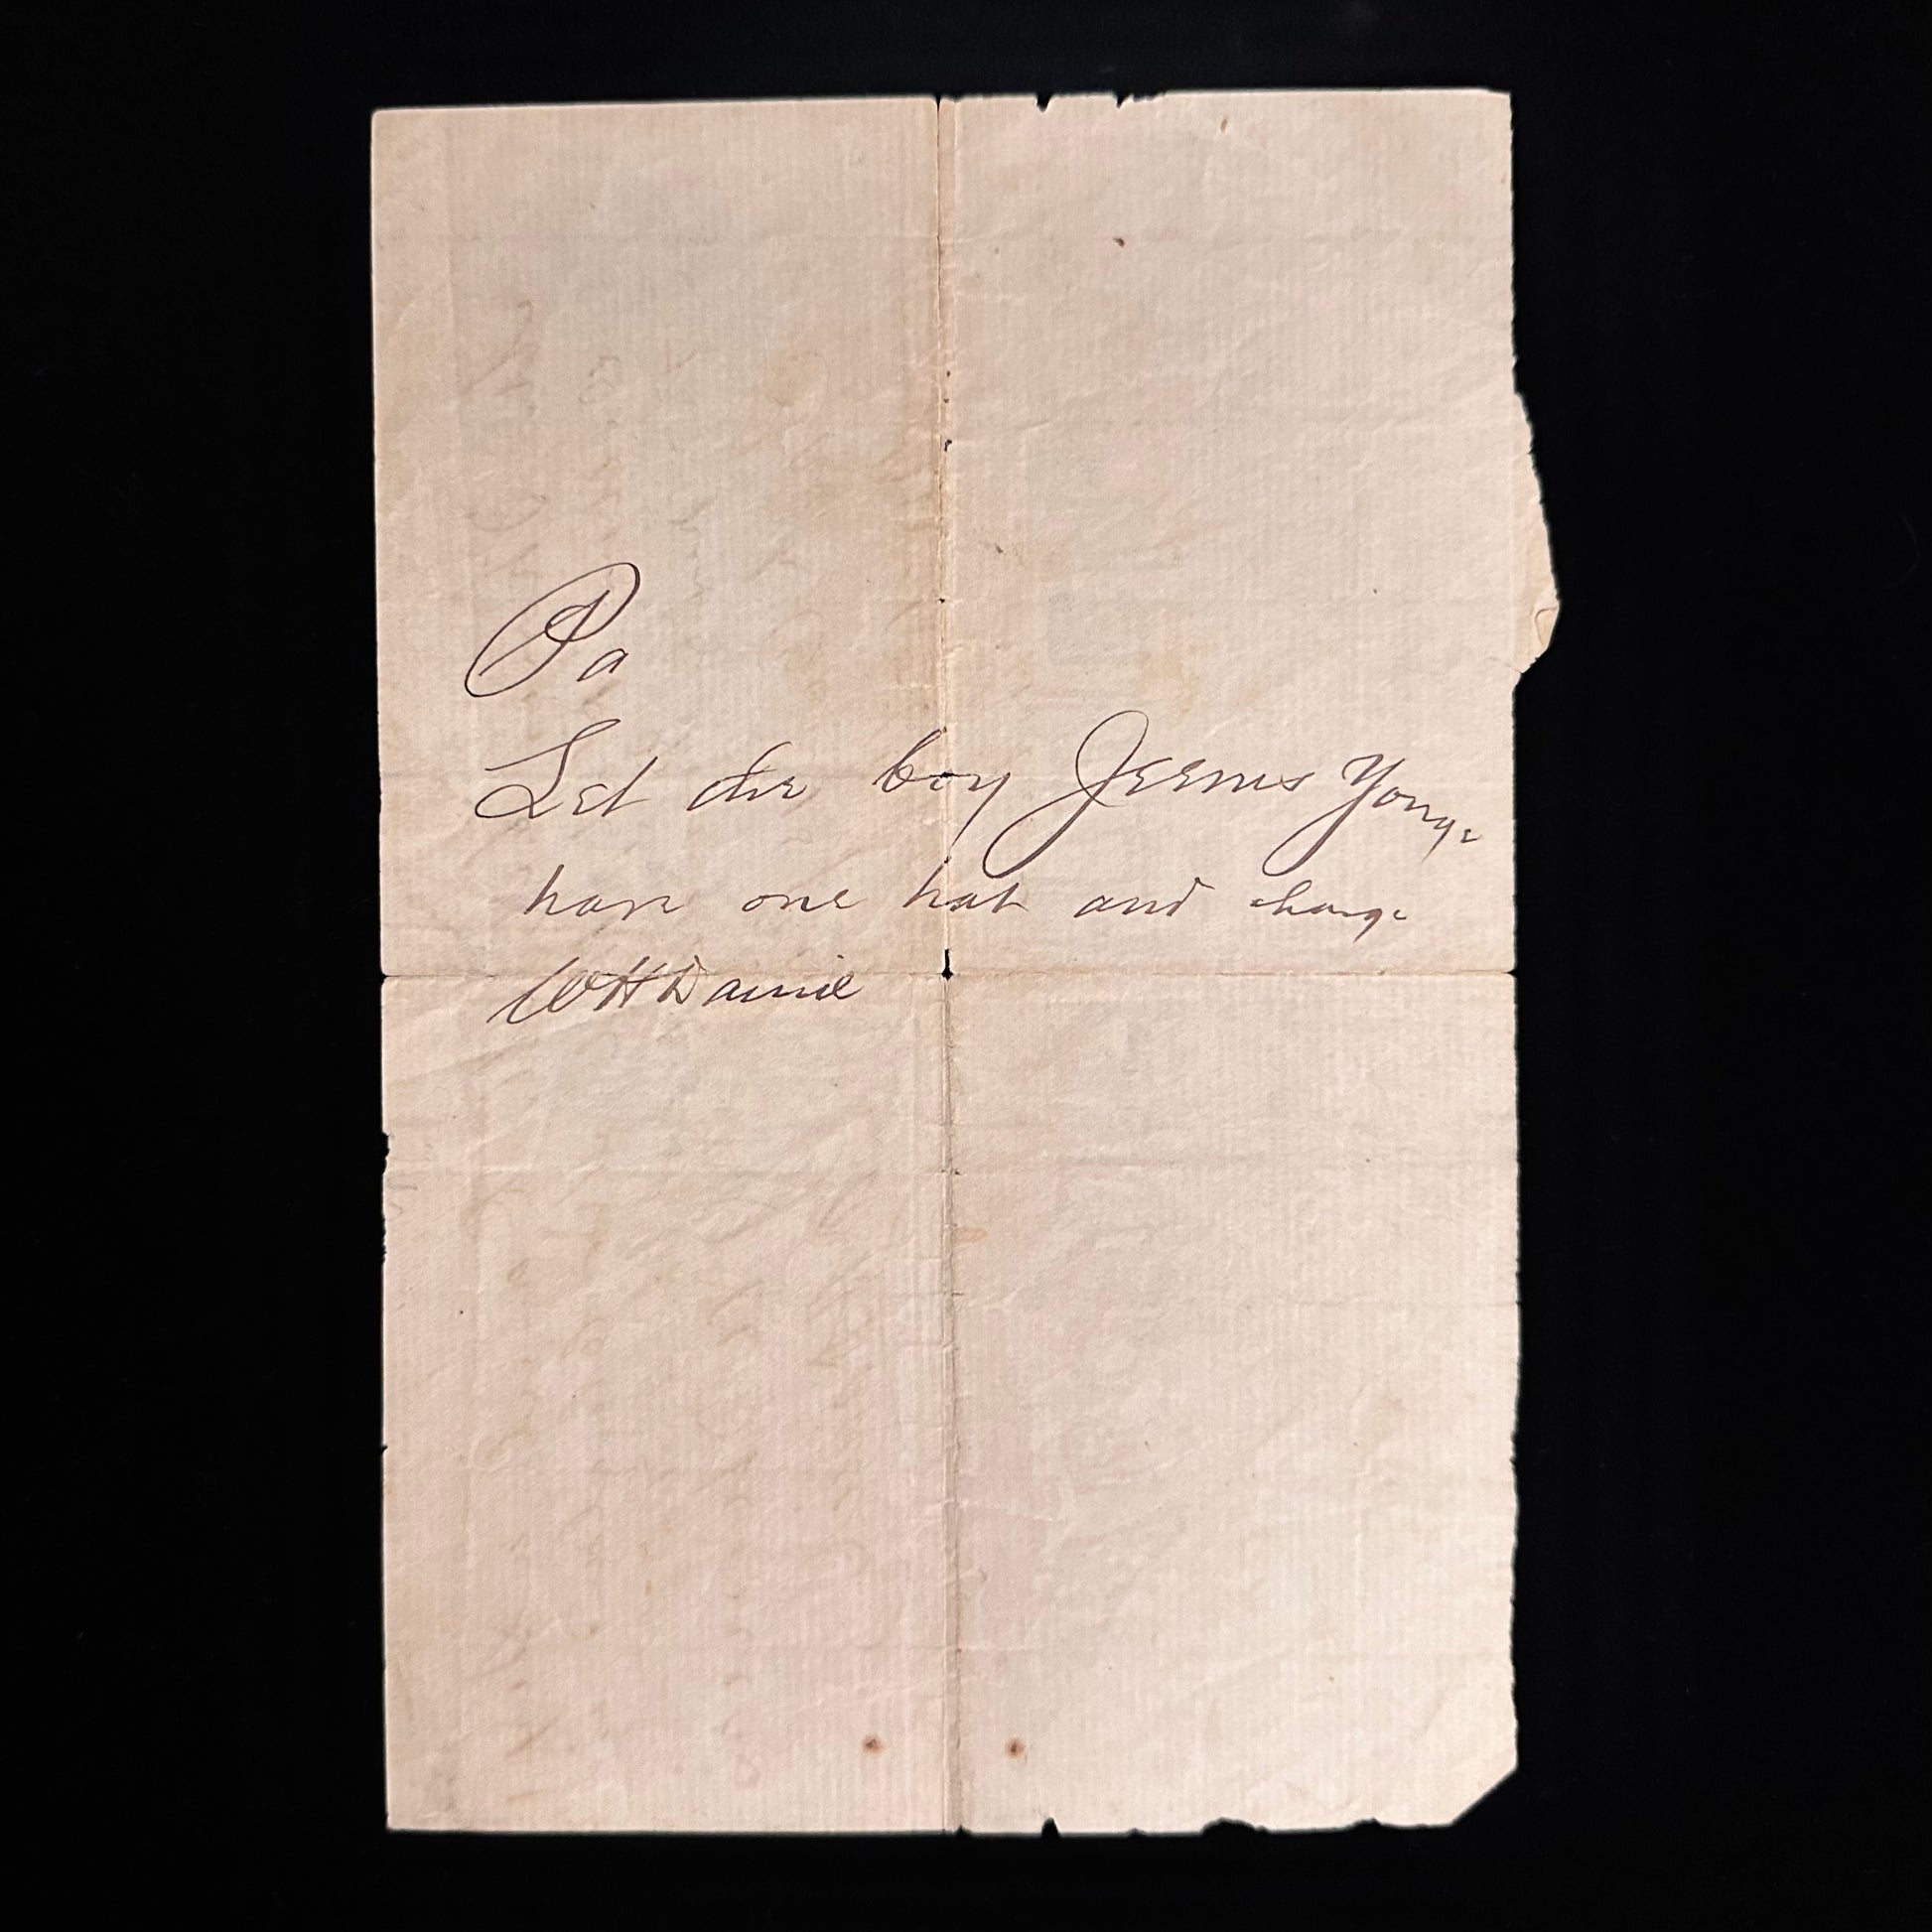 Pa
Let the boy Jeems Young
have one hat and charge
WH Daniel